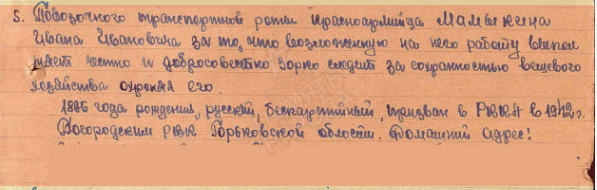 5. Повозочного транспортной роты красноармейца Мамыкина
Ивана Ивановича за то, что возложенную на него работу выпол
няет честно и добросовестно зорко следит за сохранностью вещевого
хозяйства охраняя его.
1896 года рождения, русский, беспартийный, призван в РККА в 1942 г.
Богородским РВК Горьковской области. Домашний адрес: